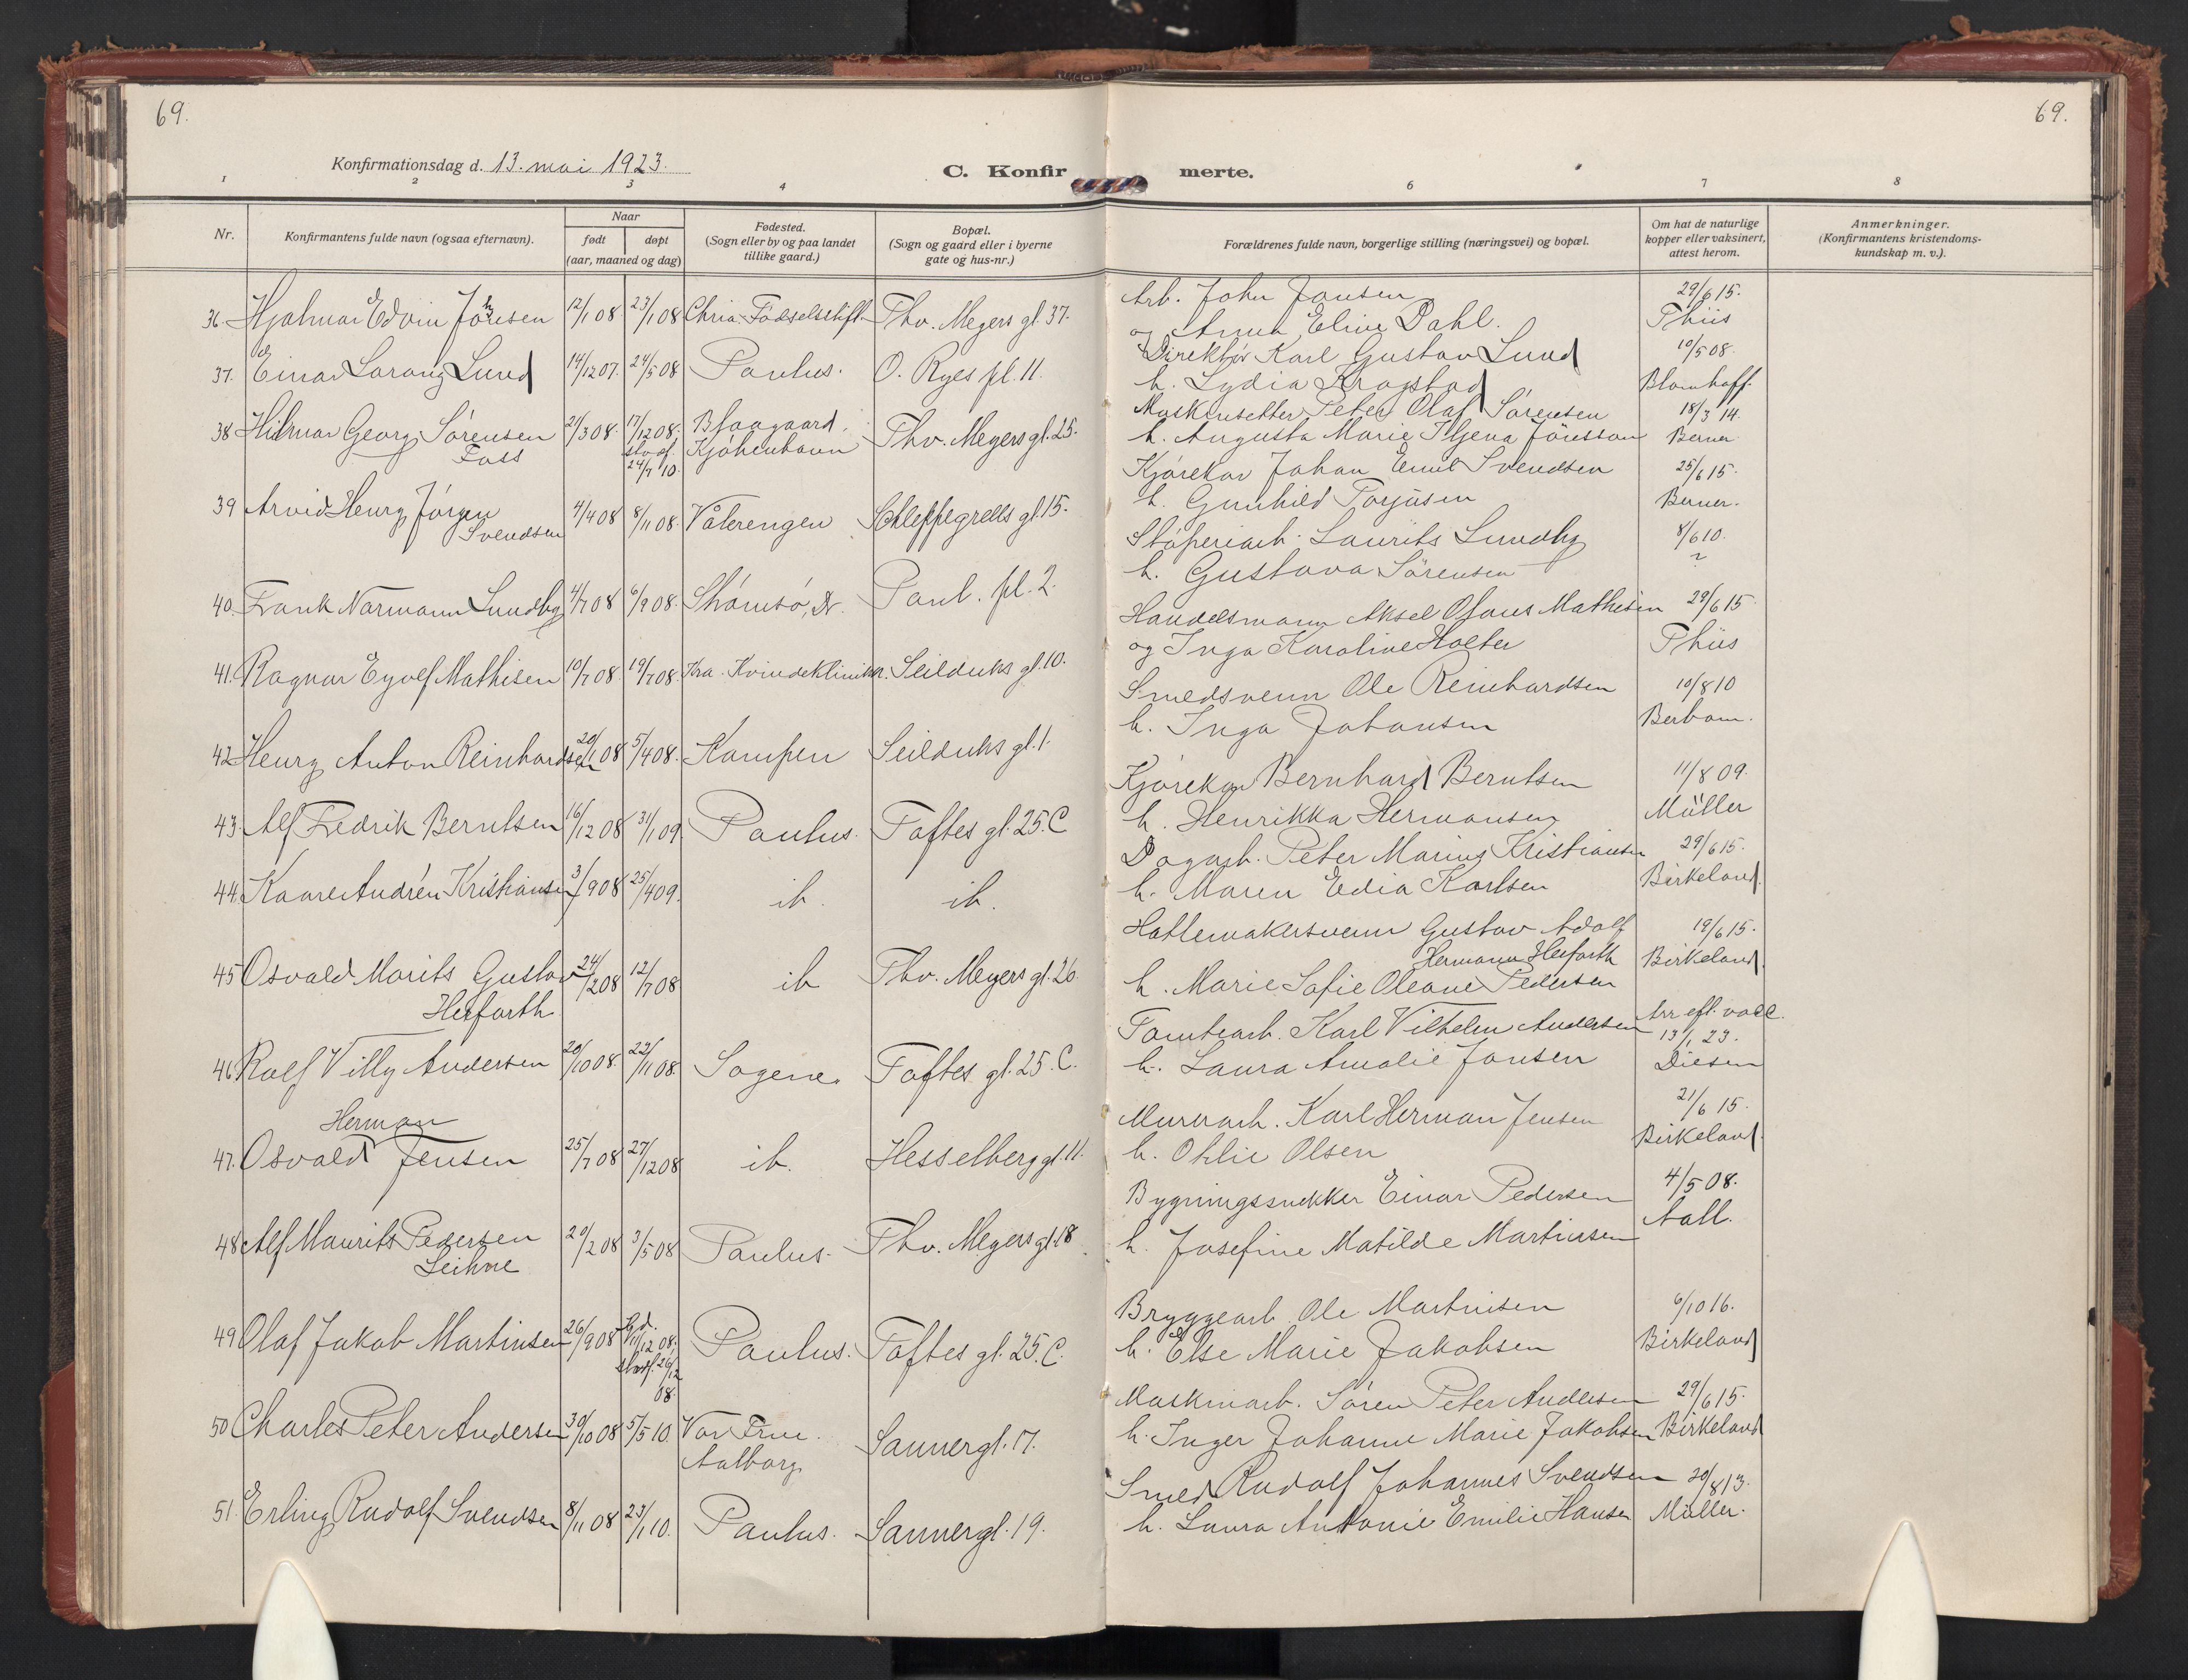 69.
69.
Konfirmationsdag d. 13. mai 1923.
C. Konfir
merte.
1 2 3 4 6 7 8
Nr.
Konfirmantens fulde navn (ogsaa efternavn).
Naar
født
døpt
(aar, maaned og dag)
Fødested.
(Sogn eller by og paa landet
tillike gaard.)
Bopæl.
(Sogn og gaard eller i byerne
gate og hus-nr.)
Forældrenes fulde navn, borgerlige stilling (næringsvei) og bopæl.
Om hat de naturlige
kopper eller vaksinert,
attest herom.
Anmerkninger.
(Konfirmantens kristendoms-
kundskap m. v.).
36. Hjalmar Edvin 12/1 08 23/1 08 Chria Fødselsstift. Thv. Meyers gt. 37.
Arb. John Jonsen
og Anna Eline Dahl.
29/6 15.
Thiis
37. Einar Lorang Lund 14/12 07. 24/5 08 Paulus. O. Ryes pl. 11.
Direktør Karl Gustav Lund
h. Lydia Krogstad
10/5 08.
Blomhoff.
38 Hilmar Georg Sørensen 21/3 08. 17/12 08. Blaagaard, Thv. Meyers gt. 25.
Foss
stadf.
24/7 10.
Kjøbenhavn
Maskinsetter Peter Olaf Sørensen
h. Augusta Marie
18/3 14.
Berner
39 Arvid Henry Jörgen 4/4 08 8/11 08. Vålerengen Schleppegrells gt. 15.
Svendsen
Kjørekar Johan Emil Svendsen
h. Gunhild Torjusen
25/6 15.
Berner.
40. Frank Normann Lundby 4/7 08 6/9 08. Strømsø, Dr. Paul. pl. 2.
Støperiarb. Laurits Lundby
h. Gustava Sörensen
8/6 10.
41. Ragnar Eyolf Mathisen 10/7 08. 19/7 08. Kra. Kvindeklinikk. Seilduks gt. 10.
Handelsmann Aksel Olaus Mathisen
og Inga Karoline Holter
29/6 15.
Thiis
42 Henry Anton Reinhardsen 20/1 08 5/4 08. Kampen Seilduks gt. 1.
Smedsvenn Ole Reinhardsen
h. Inga Johansen
10/8 10
43. Alf Fredrik Berntsen 16/12 08 31/1 09. Paulus. Toftes gt. 25. C
Kjørekar Bernhard Berntsen
h. Henrikka Hermansen
11/8 09.
Müller
44. Kaare Andrén Kristiansen 3/9 08 25/4 09. ib. ib.
Dagarb. Peter Marius Kristiansen
h. Maren Edia Karlsen
29/6 15.
Birkeland.
45 Osvald Morits Gustav 24/2 08 12/7 08 ib Thv. Meyers gt. 26
Herfarth
Hattemakersvenn Gustav Adolf
Hermann Herfarth
h. Marie Sofie Oleane Pedersen
19/6 15.
Birkeland.
46 Rolf Villy Andersen 20/10 08. 22/11 08. Sagene. Toftes gt. 25. C.
Tomtearb. Karl Vilhelm Andersen
h. Laura Amalie Jonsen
Arr eft. vacc.
13/1 23.
Diesen
Herman
47. Osvald Jensen 25/7 08 27/12 08 ib. Hesselberg gt. 11.
Murerarb. Karl Herman Jensen
h. Otilie Olsen
21/6 15.
Birkeland.
48 Alf Maurits Pedersen 29/2 08 3/5 08 Paulus. Thv. Meyers gt. 18
Leikne
Bygningssnekker Einar Pedersen
h. Josefine Matilde Martinsen
4/5 08.
Aall.
49 Olaf Jakob Martinsen 26/9 08 11/12 08; Paulus. Toftes gt. 25. C.
stadf. 26/12
08.
Bryggearb. Ole Martinsen
h. Else Marie Jakobsen
6/10 16.
Birkeland
50 Charles Peter Andersen 30/10 08 5/5 10. Vor Frue. Sannergt. 17.
Aalborg
Maskinarb. Sören Peter Andersen
h. Inger Johanne Marie Jakobsen
29/6 15.
Birkeland
51. Erling Rudolf Svendsen 8/11 08 23/1 10. Paulus. Sannergt. 19.
Smed Rudolf Johannes Svendsen
h. Laura Antonie Emilie Hansen
20/8 13.
Müller.